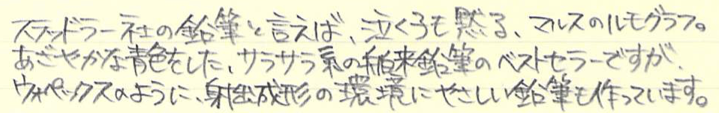 ステッドラー社の鉛筆と言えば、泣く子も黙る、マルスのルモグラフ。
あざやかな青色をした、サラサラ系の舶来鉛筆のベストセラーですが、
ウォペックスのように、射出成形の環境にやさしい鉛筆も作っています。